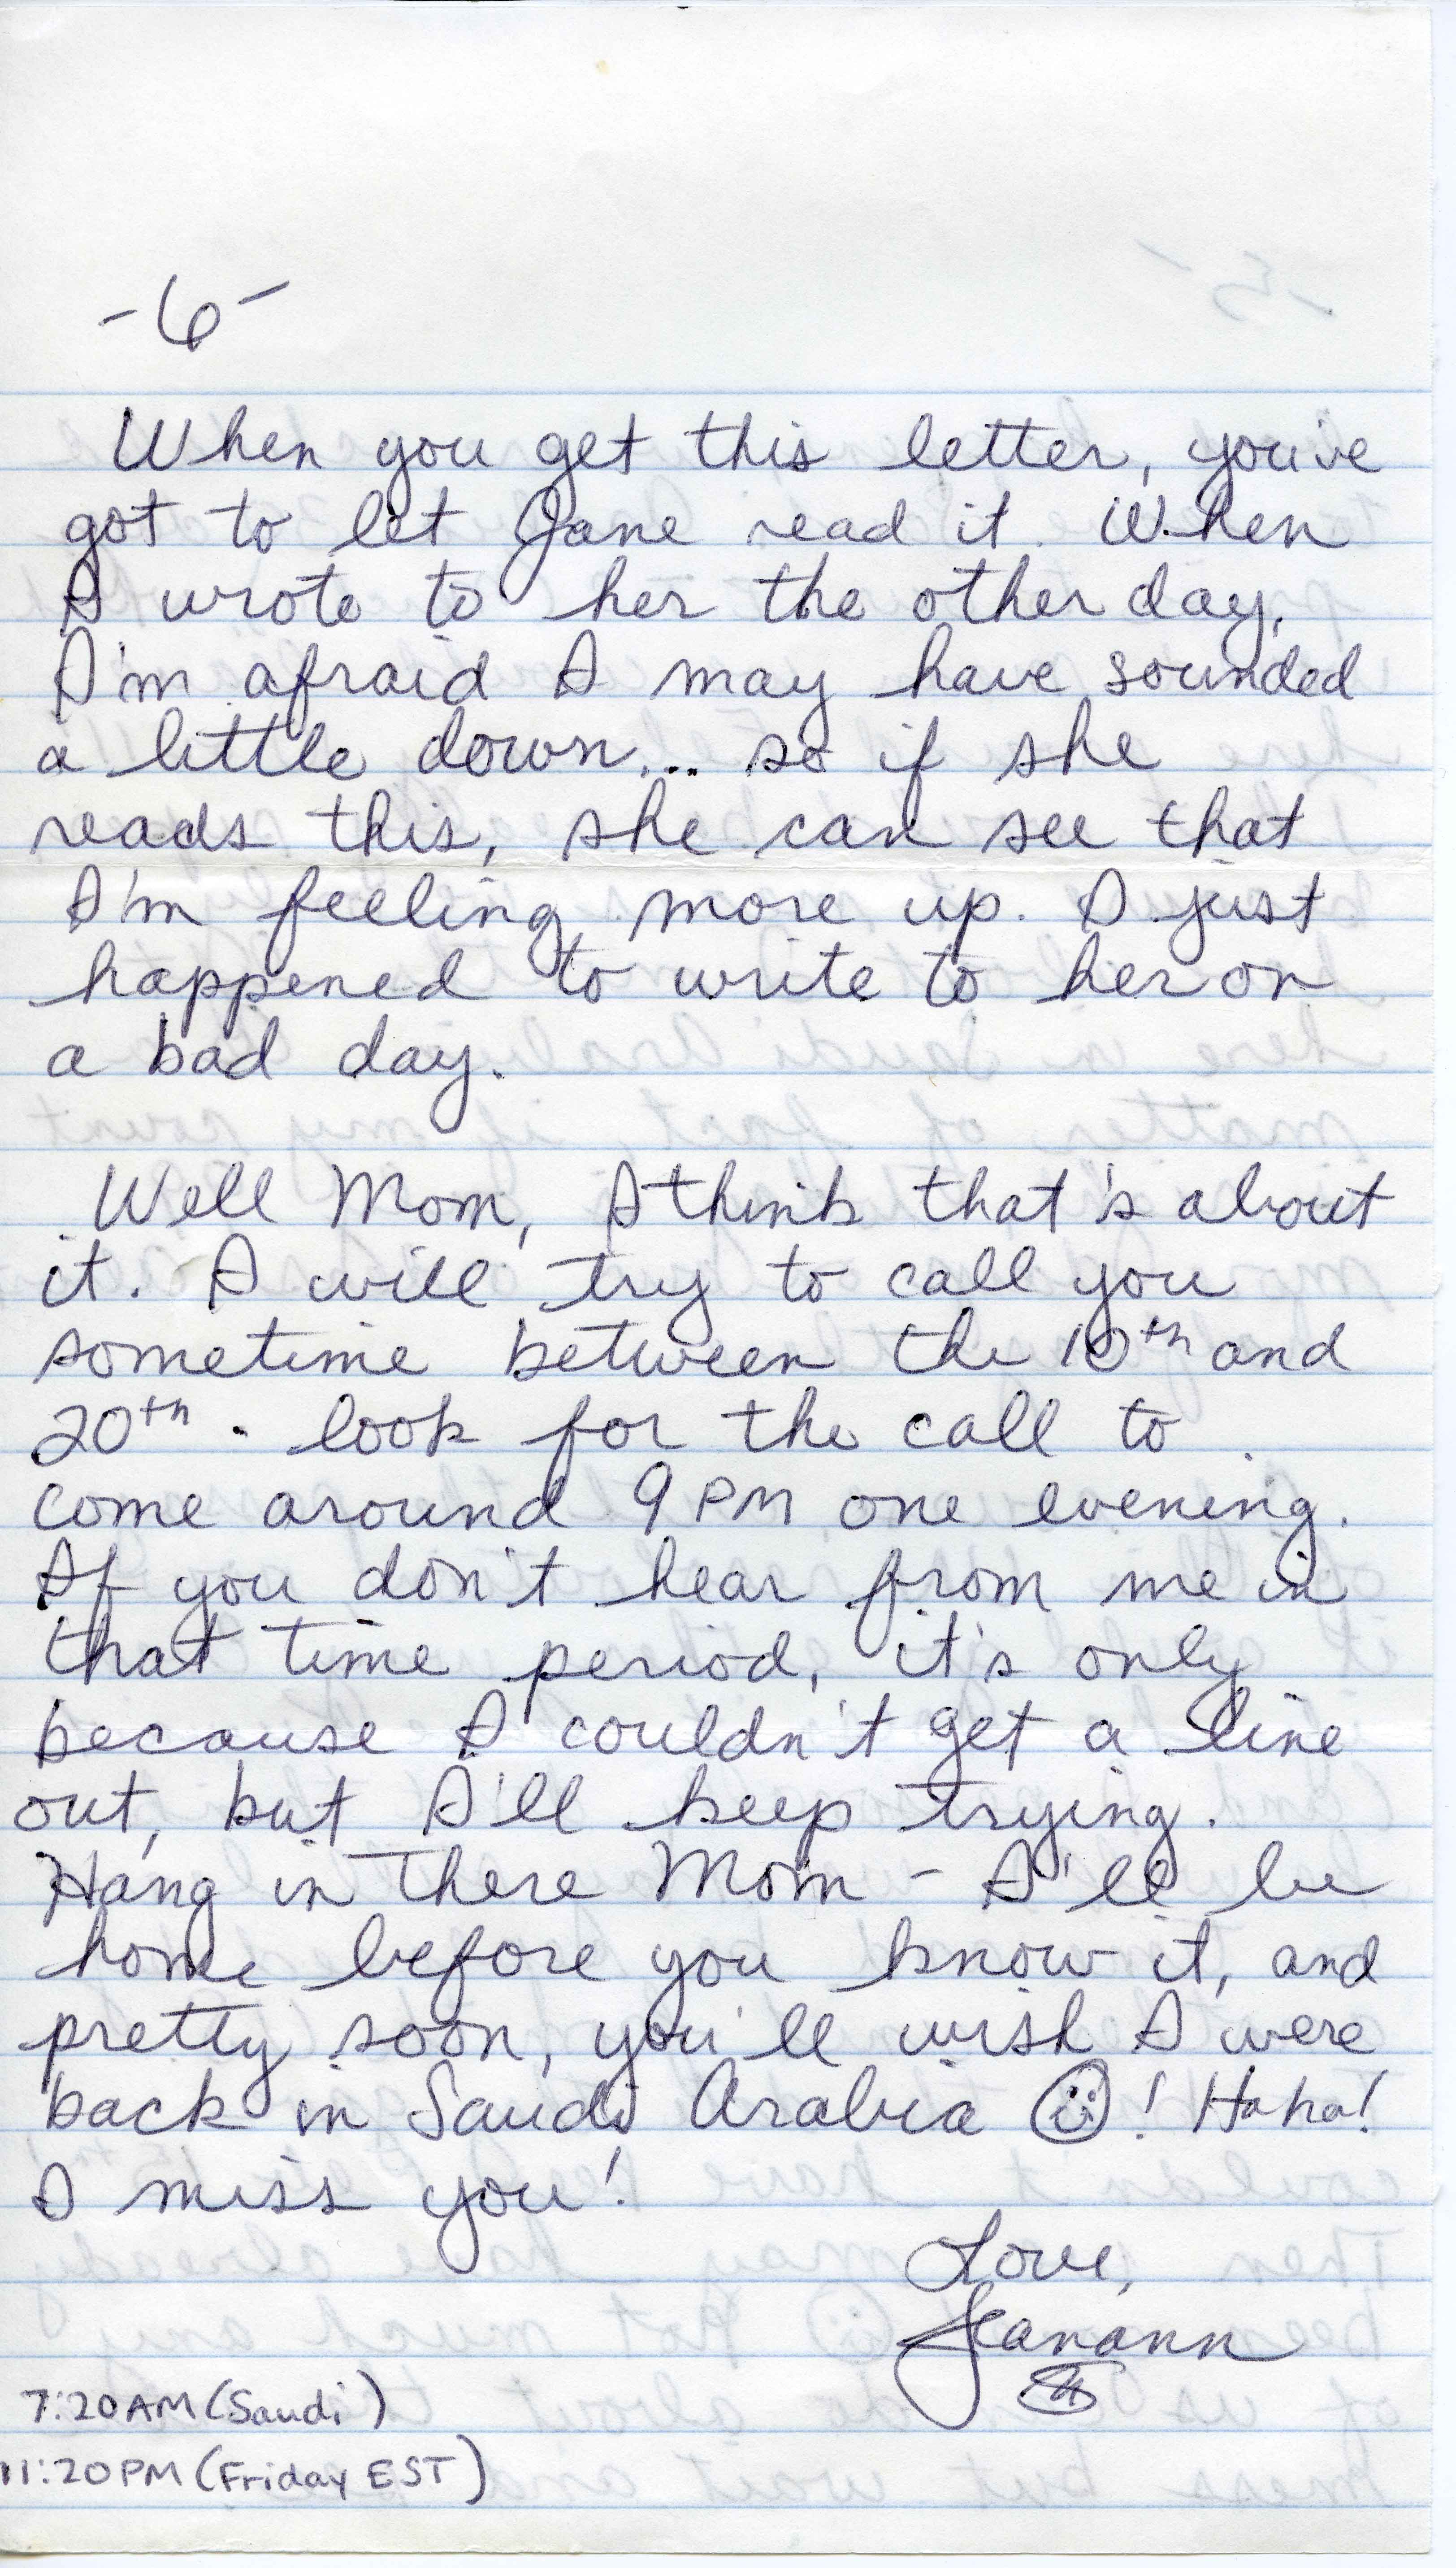 -6-
When you get this letter, you've
got to let Jane read it. When
I wrote to her the other day,
I'm afraid I may have sounded
a little down... so if she
reads this, she can see that
I'm feeling more up. I just
happened to write to her on
a bad day.
Well Mom, I think that's about
it. I will try to call you
sometime between the 10th and
20th. look for the call to
come around 9 PM one evening.
If you don't hear from me in
that time period, it's only
because I couldn't get a line
out, but I'll keep trying.
Hang in there Mom - I'll be
home before you know it, and
pretty soon, you'll wish I were
back in Saudi Arabia ☺! Ha ha!
I miss you!
Love,
Jeanann
7:20AM (Saudi)
11:20PM (Friday EST)